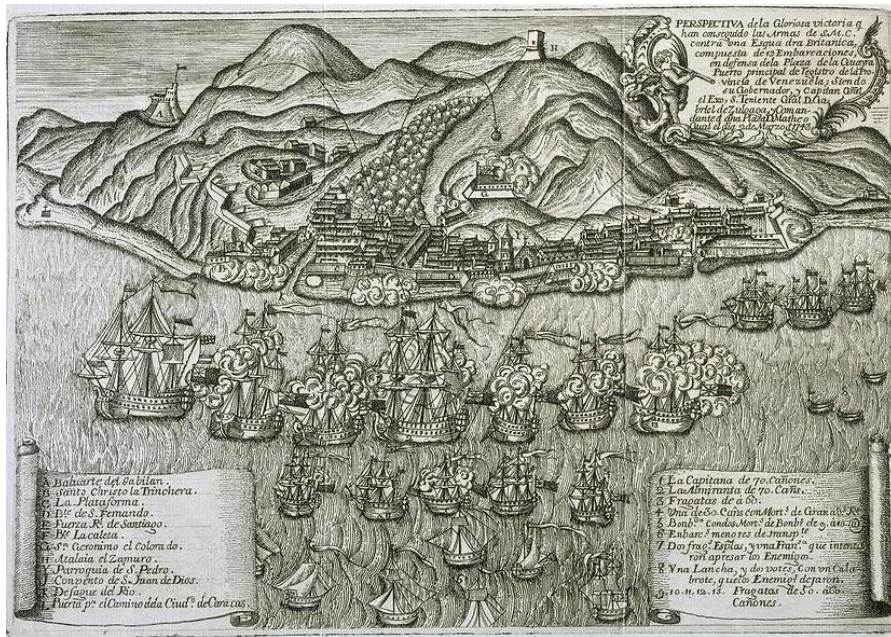 PERSPECTIVA dela Gloriosa victoria q
han conseguido las Armas de S.M.C.
contra vna Esquadra Britanica,
compuesta de 12 Embarcaciones,
en defensa dela Plaza de la Guayra
Puerto principal de Registro de la Pro
vincia de Venezuela; Siendo
su Governador, y Capitan Gral
el Exo. S. Teniente Gral. D. Ga
briel de Zuloaga, y Coman
dante d dha Plaza D. Matheo
Gual el dia 2 de Marzo d 1743.
A Baluarte del Gabilan.
B Santo Christo la Trinchera.
C La Plataforma.
D Bte. de S. Fernando.
E Fuerza Rl. de Santiago.
F Bte. La caleta.
G Sn. Geronimo el Colorado.
H Atalaia el Zamuro.
Y Parroquia de S. Pedro.
J Convento de S. Juan de Dios.
K Desague del Rio.
L Puerta pa. el Camino dela Ciud. de Caracas.
1 La Capitana de 70. Cañones.
2 La Almiranta de 70. Cañs.
3 Fragatas de a 60.
4 Vna de 50. Cañs con Mort. de Granads. Rs.
5 Bonbda. con dos Mort. de Bonbs. de 9. a 10.
6 Enbarcs. menores de Transpte.
7 Dos frags. Esplas, y vna Frans. que intenta
ron apresar los Enemigos.
8 Vna Lancha, y dos votes, Con vn Cala
brote, que los Enemigs. dejaron.
9. 10. 11. 12. 13. Fragatas de 50. a 60.
Cañones.
A
H
G